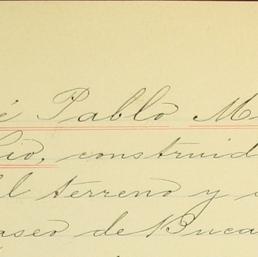 é Pablo M
lio, construid
el terreno y
aseo de Buca